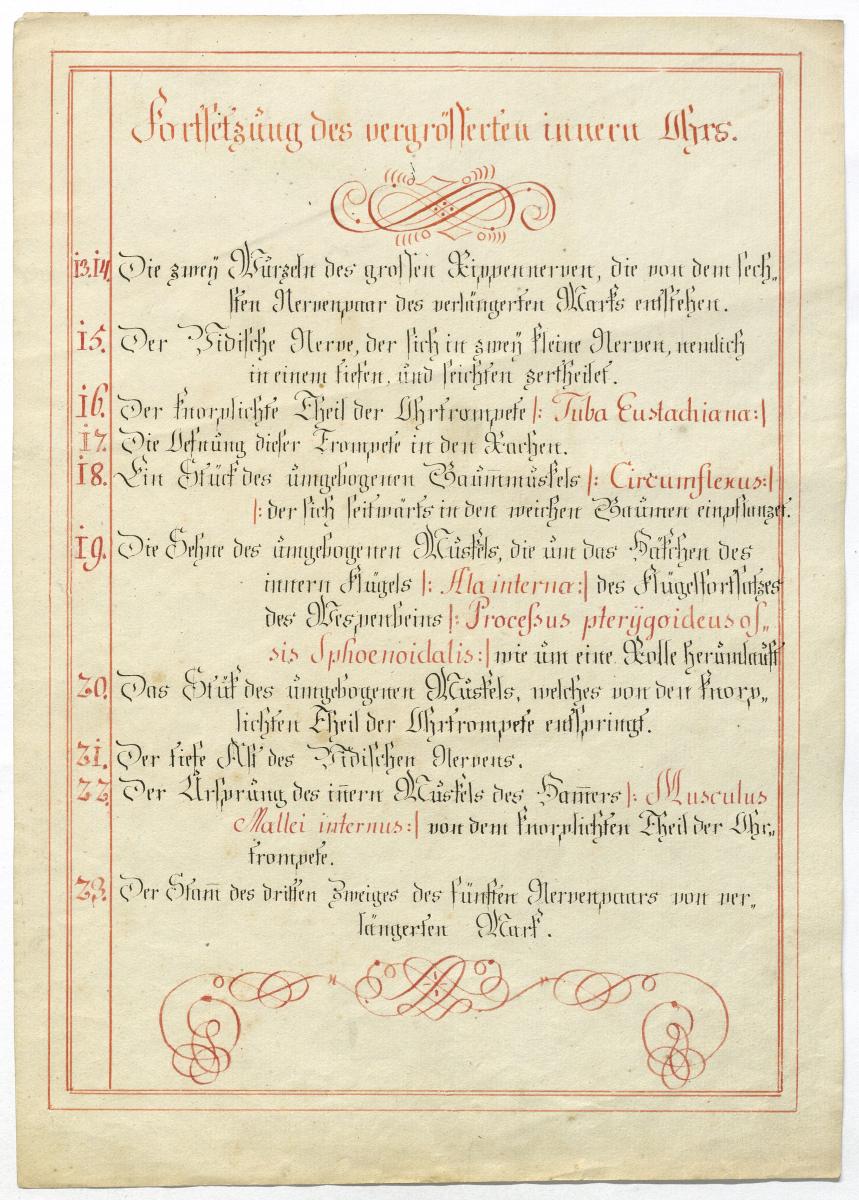 Fortsetzung des vergrösserten innern Ohrs.
13.14. Die zweÿ Wurzeln des grossen Rippennerven, die von dem sech„
sten Nervenpaar des verlängerten Marks entstehen.
15. Der Vidische Nerve, der sich in zweÿ kleine Nerven, nemlich
in einem tiefen, und seichten zertheilet.
16. Der knorplichte Theil der Ohrtrompete |: Tuba Eustachiana :|
17. Die Oefnung dieser Trompete in den Rachen.
18. Ein Stück des umgebogenen Gaum̄muskels |: Circumflexus :|
|: der sich seitwärts in den weichen Gaumen einpflanzet.
19. Die Sehne des umgebogenen Muskels, die um das Häkchen des
innern Flügels |: Ala interna :| des Flügelfortsatzes
des Wespenbeins |: Processus pterÿgoideus os„
sis Sphoenoidalis :| wie um eine Rolle herumlauft
20. Das Stük des umgebogenen Muskels, welches von den knorp„
lichten Theil der Ohrtrompete entspringt.
21. Der tiefe Ast des Vidischen Nervens.
22. Der Ursprung des in̄ern Muskels des Ham̄ers |: Musculus
Mallei internus :| von dem knorplichten Theil der Ohr„
trompete.
23. Der Stam̄ des dritten Zweiges des fünften Nervenpaars von ver„
längerten Mark.